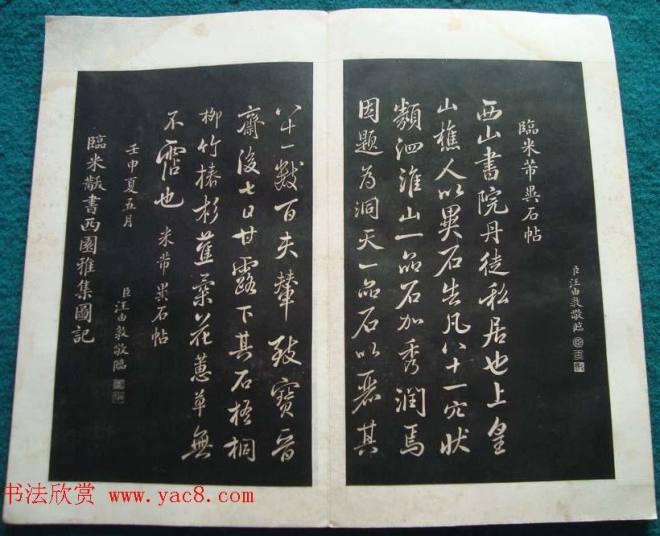 臨米芾異石帖
臣汪由敦敬臨
西山書院丹徒私居也上皇
山樵人以異石告凡八十一穴狀
類泗淮山一品石加秀潤焉
因題為洞天一品石以麗其
八十一數百夫輦致寶晉
齋後七日甘露下其石梧桐
柳竹椿杉蕉葉花蕙草無
不霑也
米芾異石帖
壬申夏五月
臣汪由敦敬臨
臨米黻書西園雅集圖記
书法欣赏 www.yac8.com